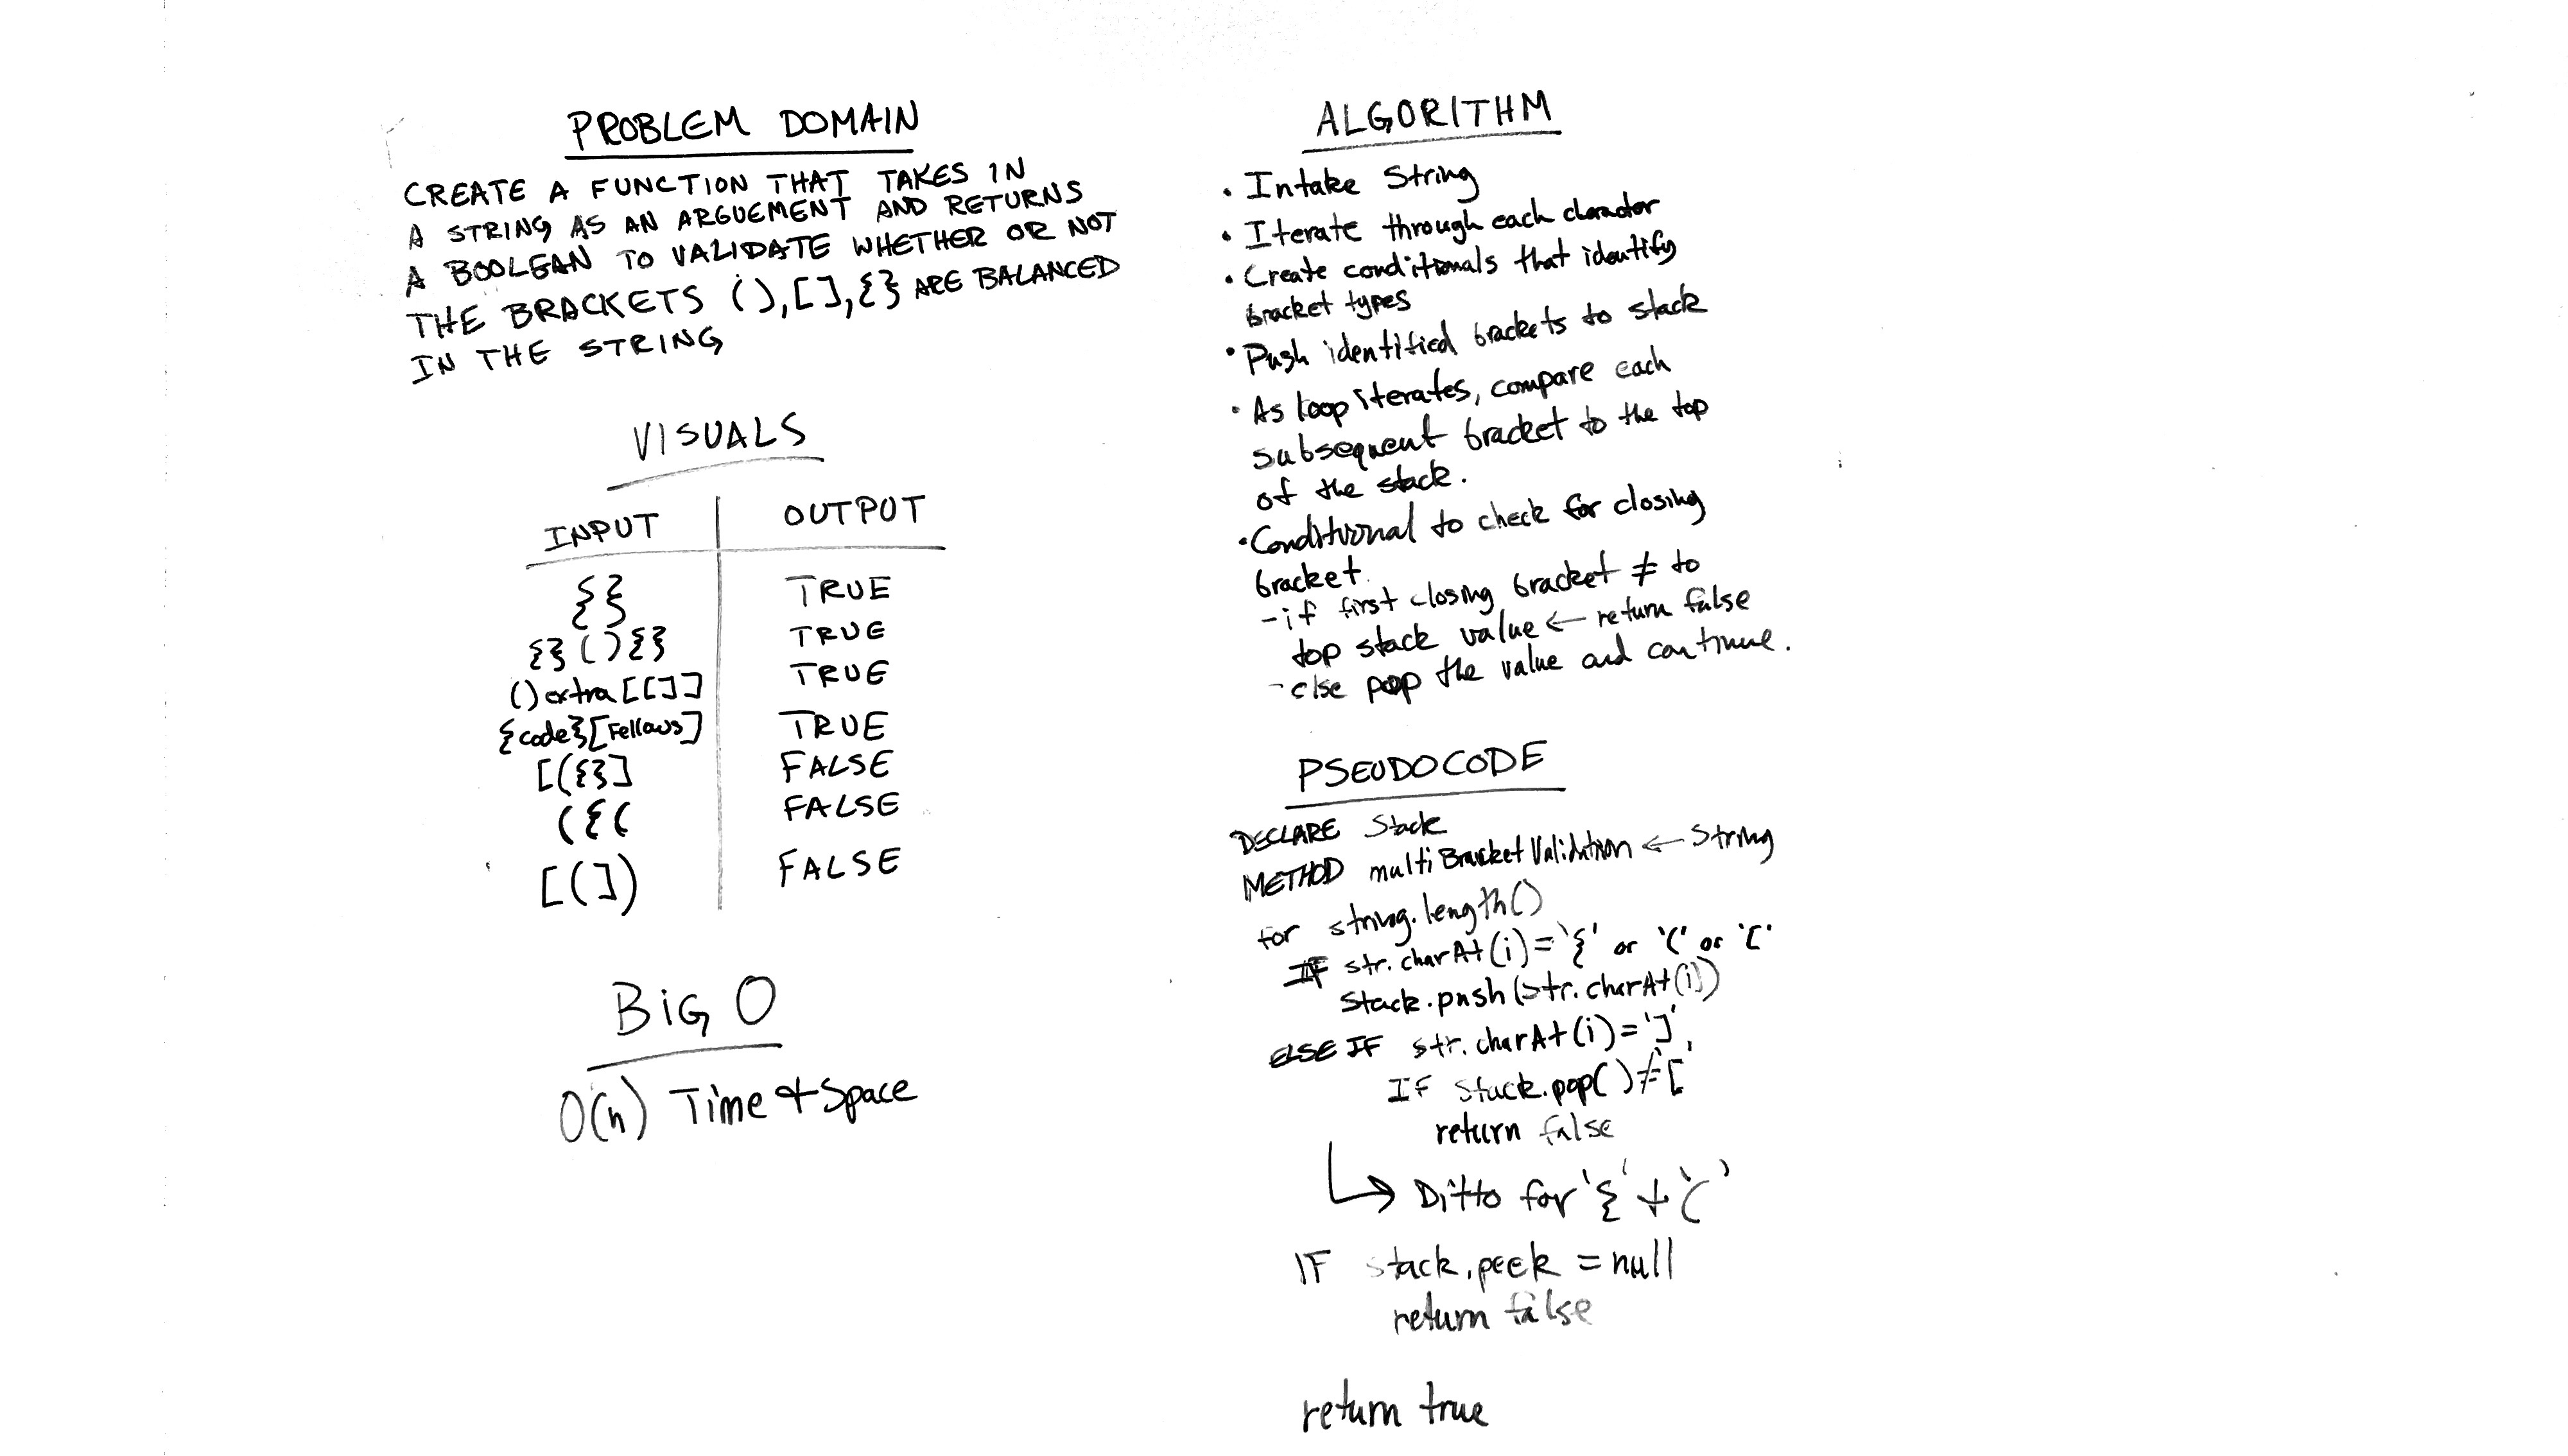 PROBLEM DOMAIN
CREATE A FUNCTION THAT TAKES IN
A STRING AS AN ARGUEMENT AND RETURNS
A BOOLEAN TO VALIDATE WHETHER OR NOT
THE BRACKETS (),[],{} ARE BALANCED
IN THE STRING
VISUALS
INPUT OUTPUT
{} TRUE
{}(){} TRUE
()extra[[]] TRUE
{code}[Fellows] TRUE
[({}] FALSE
({( FALSE
[(]) FALSE
BIG O
O(n) Time + Space
ALGORITHM
• Intake String
• Iterate through each character
• Create conditionals that identify
bracket types
• Push identified brackets to stack
• As loop iterates, compare each
subsequent bracket to the top
of the stack.
• Conditional to check for closing
bracket.
- if first closing bracket ≠ to
top stack value ← return false
- else pop the value and continue.
PSEUDOCODE
DECLARE Stack
METHOD multiBracketValidation ← String
for string.length()
IF str.charAt(i) = '{' or '(' or '['
Stack.push(str.charAt(i))
ELSE IF str.charAt(i) = ']'
IF Stack.pop() ≠ '['
return false
↳ Ditto for '{' + '('
IF stack.peek = null
return false
return true